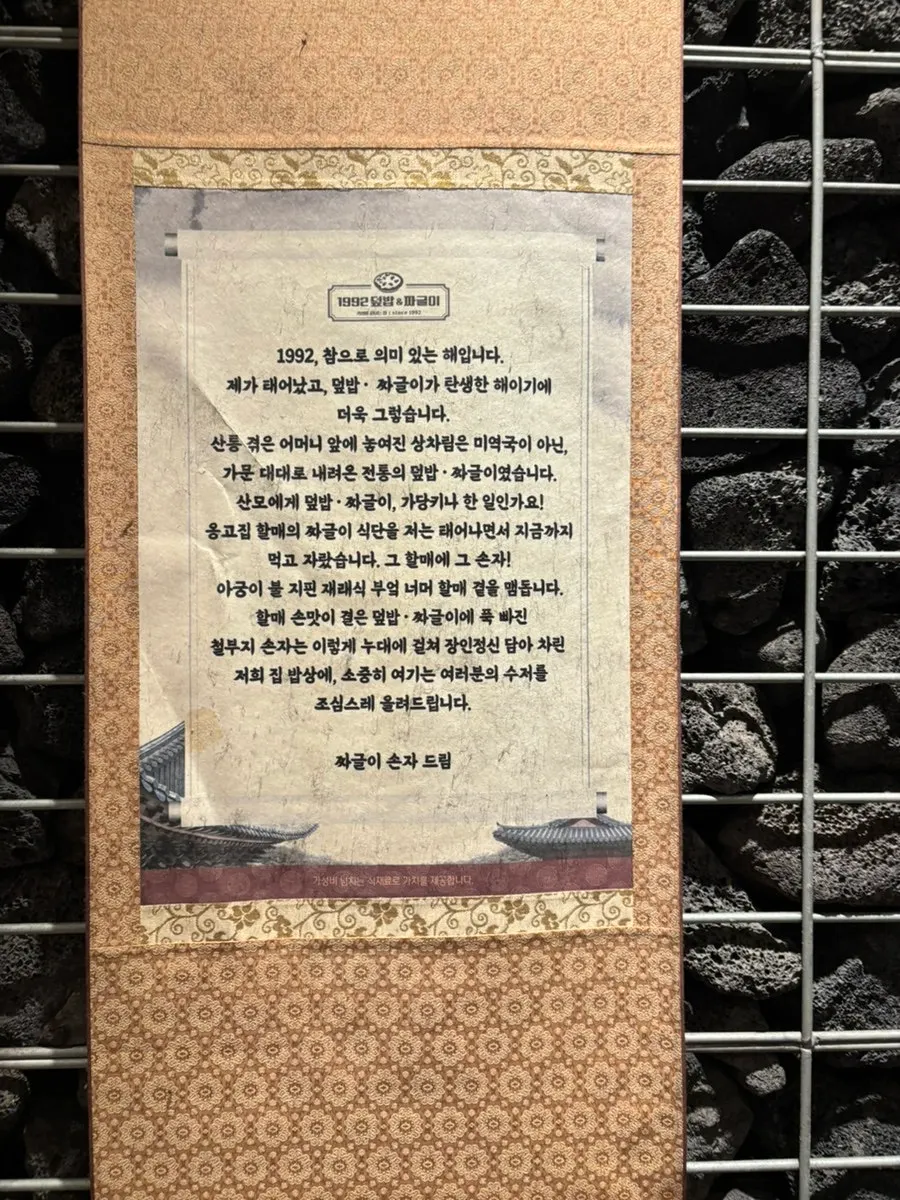 1992 덮밥&짜글이
since 1992
1992, 참으로 의미 있는 해입니다.
제가 태어났고, 덮밥 · 짜글이가 탄생한 해이기에
더욱 그렇습니다.
산통 겪은 어머니 앞에 놓여진 상차림은 미역국이 아닌,
가문 대대로 내려온 전통의 덮밥 · 짜글이였습니다.
산모에게 덮밥 · 짜글이, 가당키나 한 일인가요!
옹고집 할매의 짜글이 식단을 저는 태어나면서 지금까지
먹고 자랐습니다. 그 할매에 그 손자!
아궁이 불 지핀 재래식 부엌 너머 할매 곁을 맴돕니다.
할매 손맛이 결은 덮밥 · 짜글이에 푹 빠진
철부지 손자는 이렇게 누대에 걸쳐 장인정신 담아 차린
저희 집 밥상에, 소중히 여기는 여러분의 수저를
조심스레 올려드립니다.
짜글이 손자 드림
가성비 넘치는 식재료로 가치를 제공합니다.